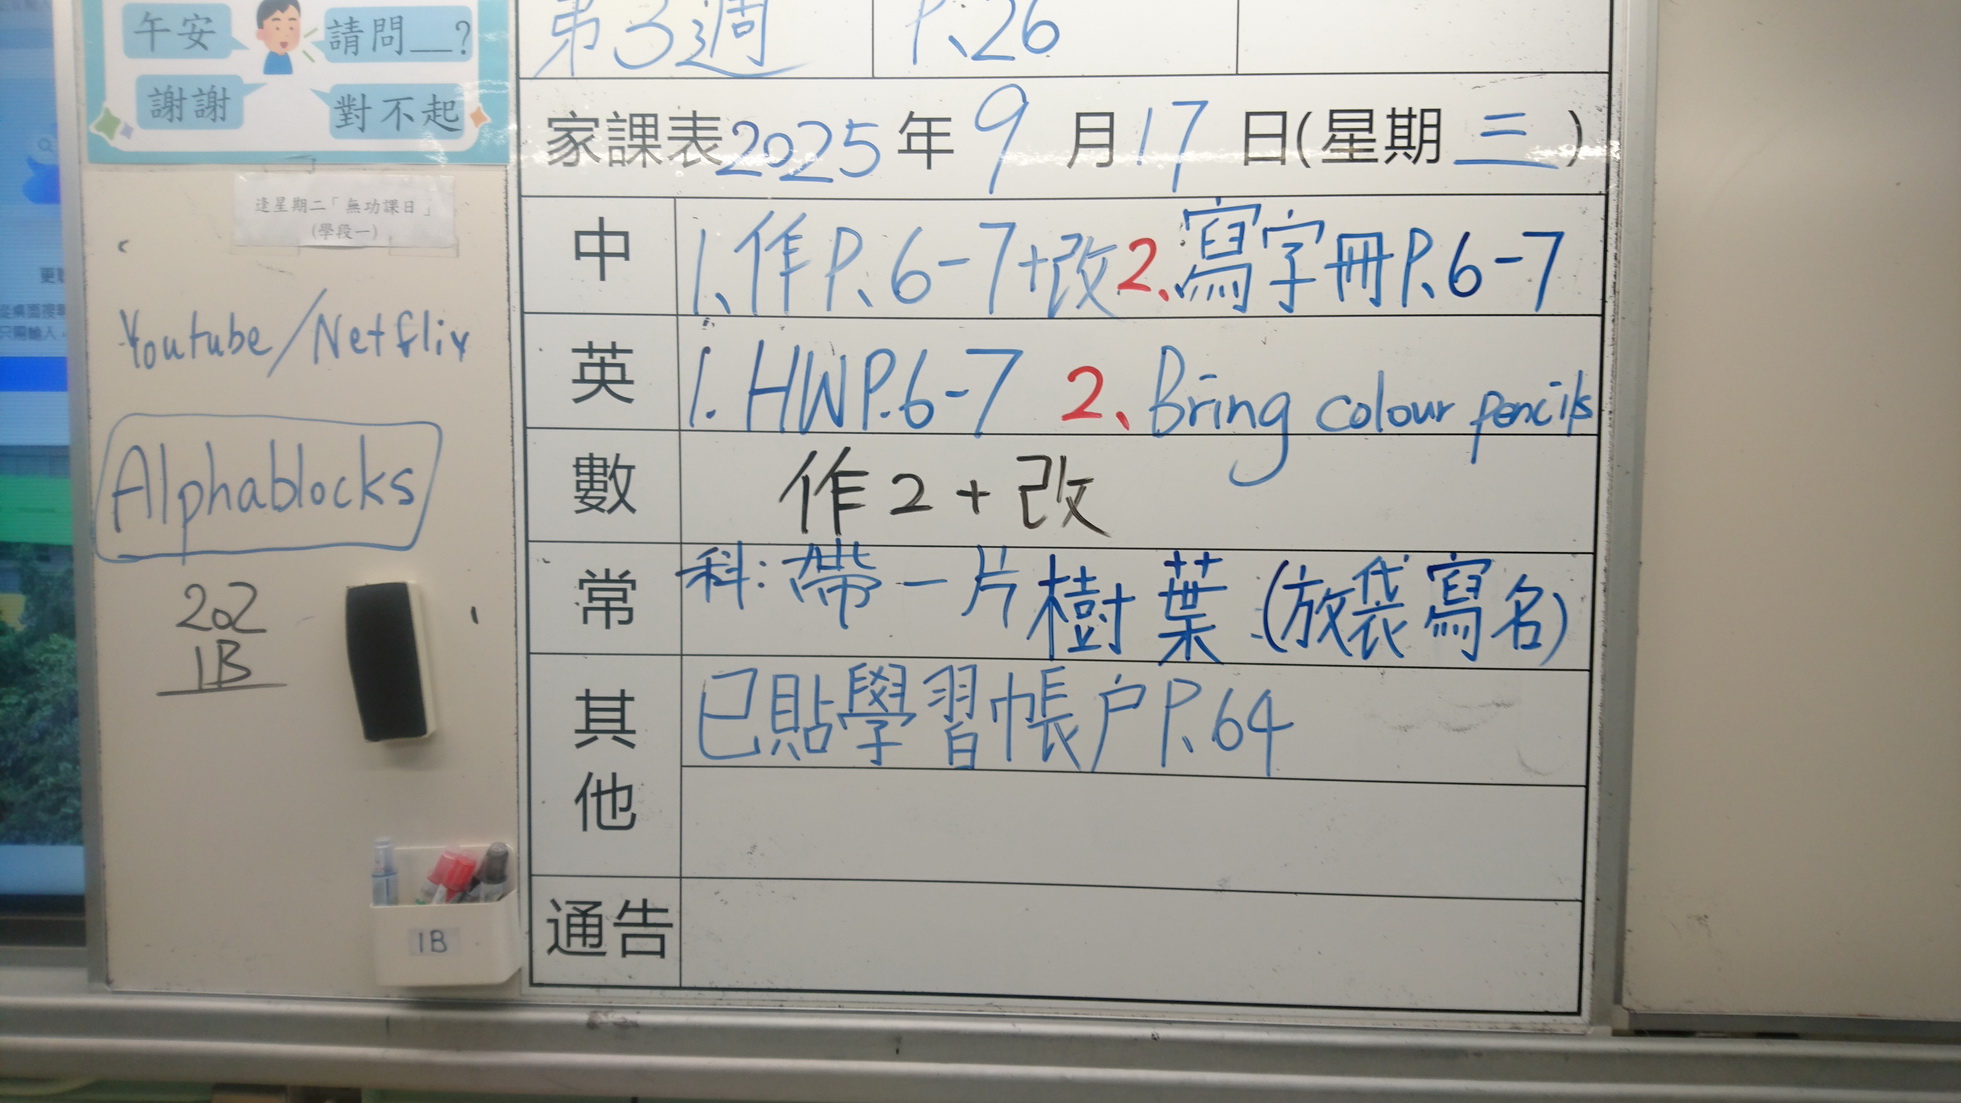 午安
請問__?
謝謝
對不起
第3週 P.26
家課表2025年9月17日(星期三)
逢星期二「無功課日」
(學段一)
中 1、作P、6-7+改 2、寫字冊P.6-7
英 1. HWP.6-7 2、Bring colour pencils
數 作2+改
常 科:帶一片樹葉(放袋寫名)
其他 已貼學習帳户P.64
通告
Youtube/Netflix
Alphablocks
202
1B
1B